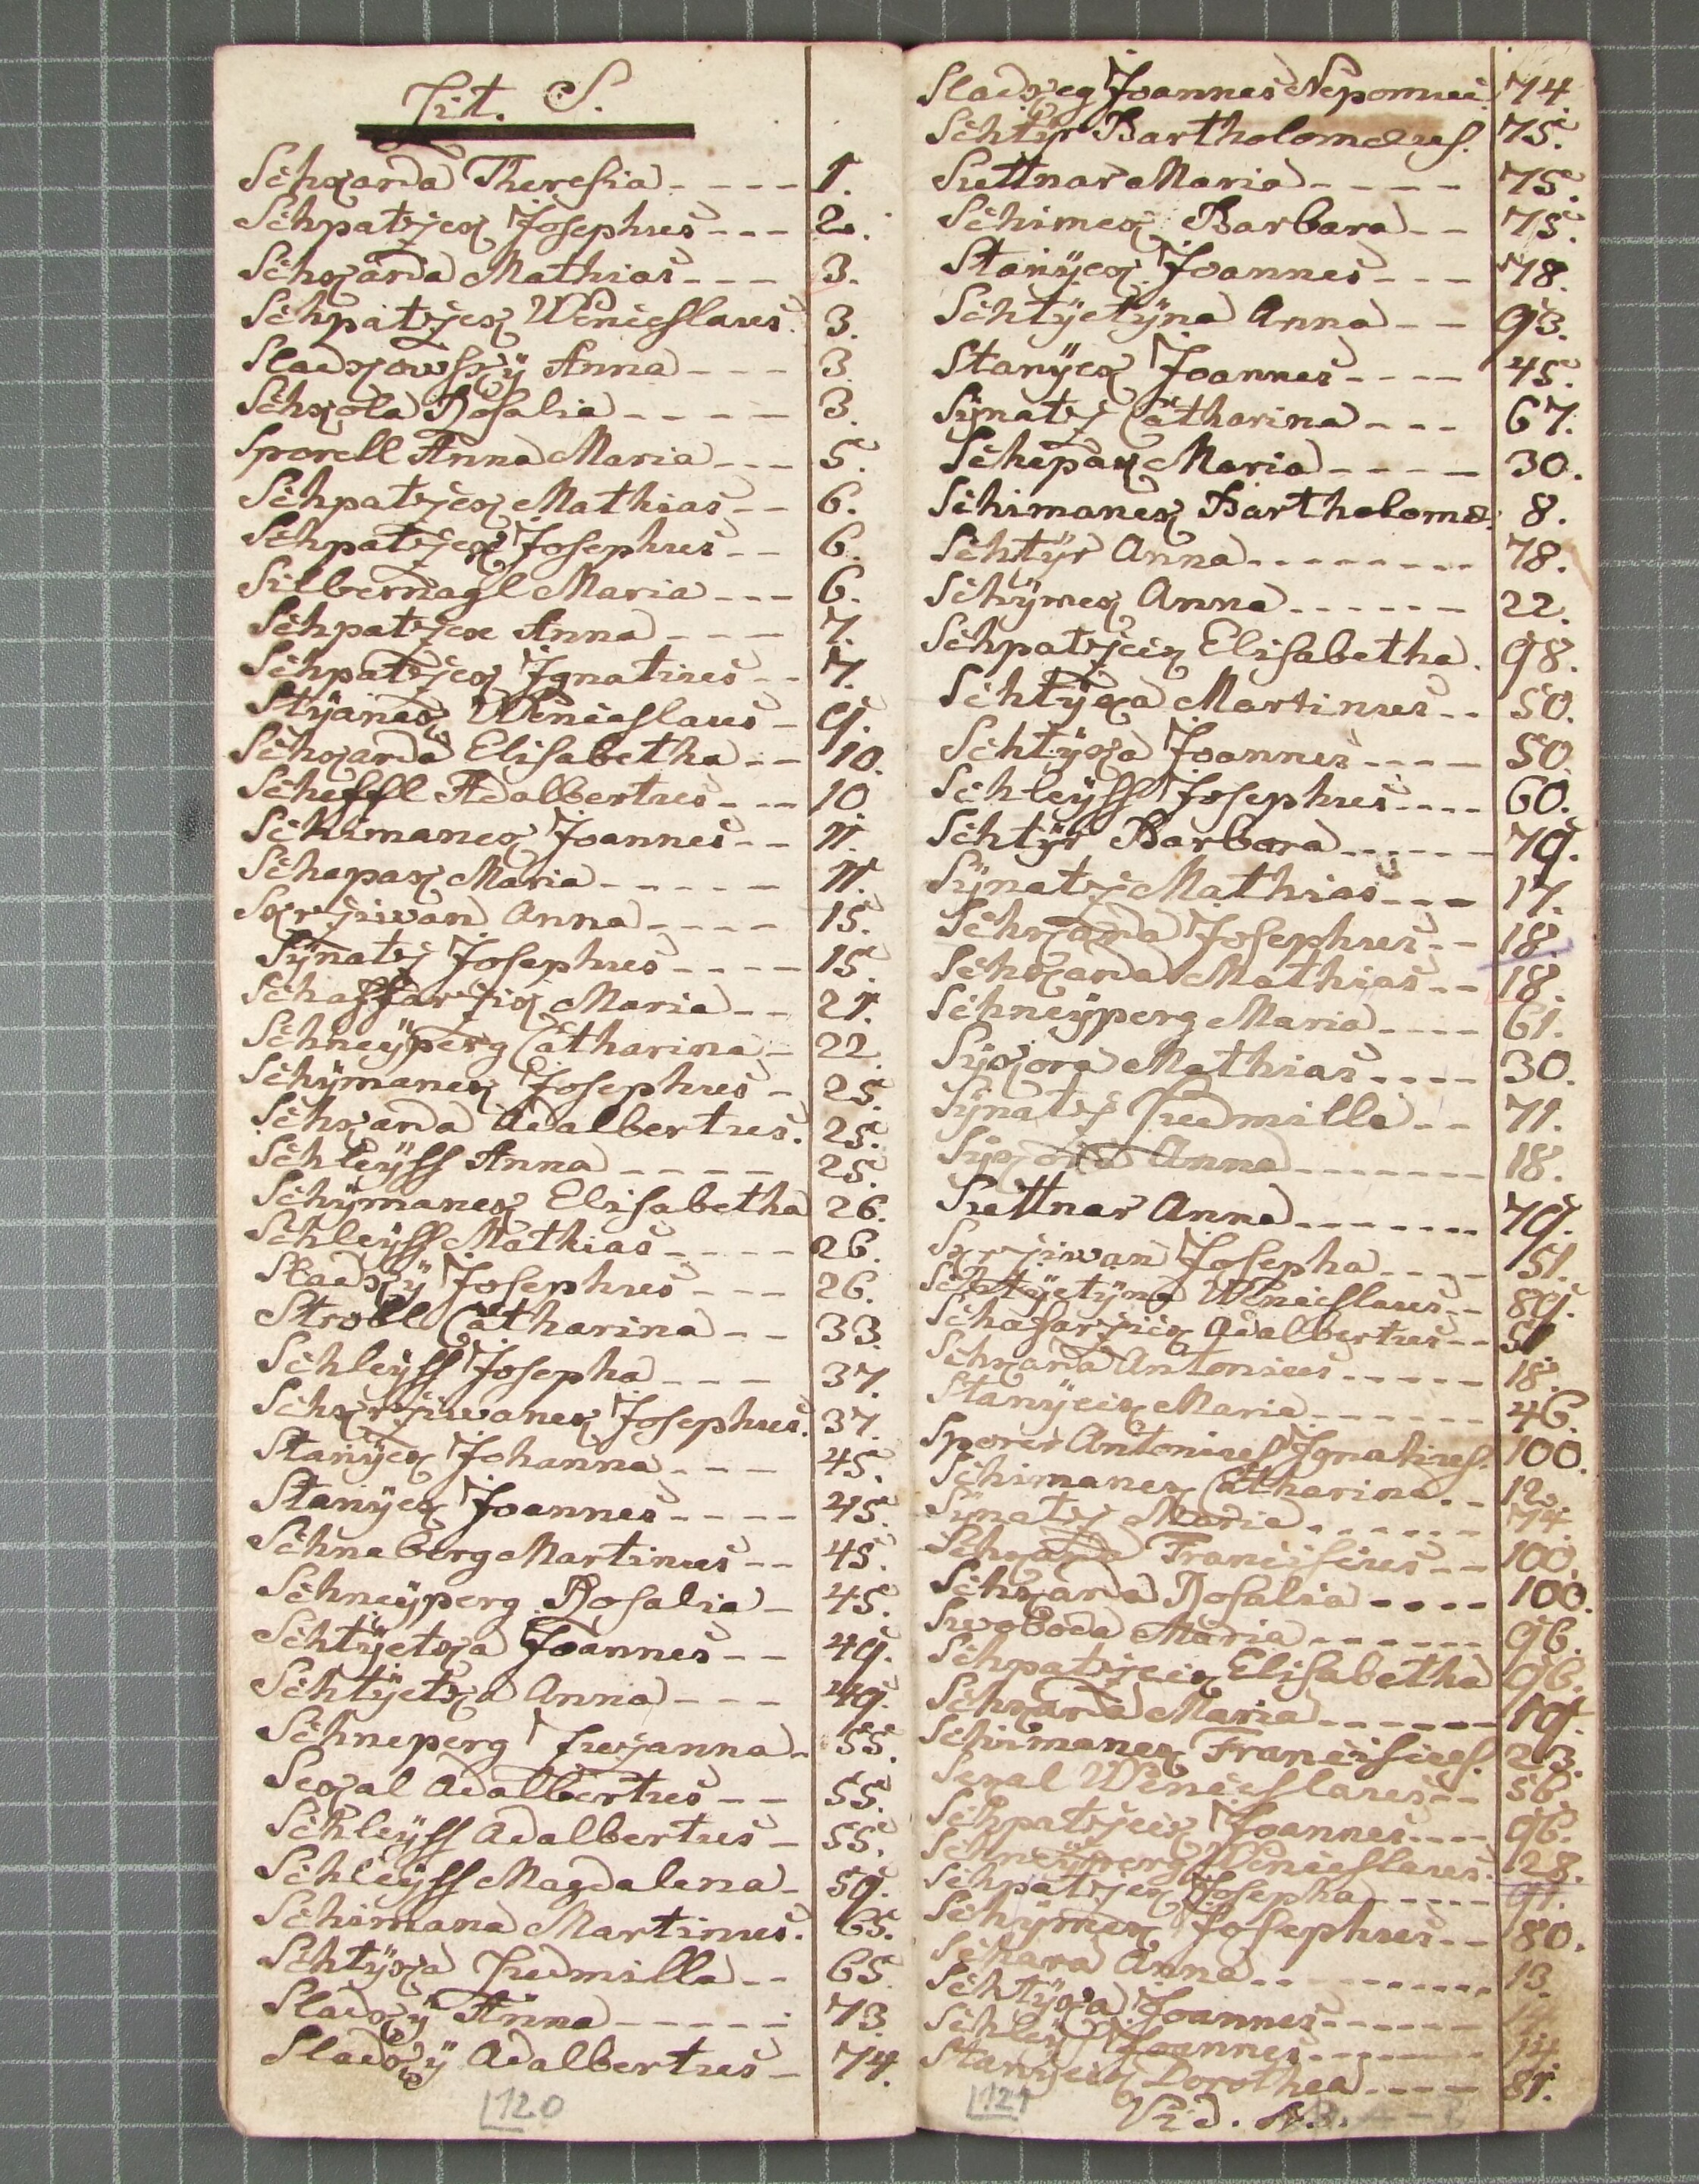 Lit. S.
Schkarda Theresia ---- 1.
Schpatzek Josephus --- 2.
Schkarda Mathias --- 3.
Schpatzek Wenceslaus. 3.
Sladkowsky Anna --- 3.
Schkola Rosalia ---- 3.
Sporell Anna Maria --- 5.
Schpatzek Mathias -- 6.
Schpatzek Josephus -- 6.
Silbernagl Maria --- 6.
Schpatzek Anna --- 7.
Schpatzek Ignatius -- 7.
Styanek Wenceslaus - 9.
Schkarda Elisabetha -- 10.
Scheffl Adalbertus --- 10.
Schimanek Joannes -- 11.
Schepak Maria ----- 11.
Skrziwan Anna ---- 15.
Synatz Josephus ---- 15.
Schaffarzik Maria -- 21.
Schneÿperg Catharina - 22.
Schÿmanek Josephus - 25.
Schkarda Adalbertus. 25.
Schleÿss Anna ---- 25.
Schÿmanek Elisabetha 26.
Schleÿss Mathias ---- 26.
Sladkÿ Josephus --- 26.
Strobl Catharina -- 33.
Schleÿss Josepha --- 37.
Schkrziwanek Josephus. 37.
Stanÿek Johanna --- 45.
Stanÿek Joannes ---- 45.
Schneberg Martinus -- 45.
Schneÿperg Rosalia - 45.
Schtÿetka Joannes -- 49.
Schtÿetka Anna --- 49.
Schneperg Suzanna - 55.
Sekal Adalbertus -- 55.
Schleÿss Adalbertus - 55.
Schleÿss Magdalena - 59.
Schimana Martinus. 65.
Schtÿka Ludmilla -- 65.
Sladkÿ Anna ----- 73.
Sladkÿ Adalbertus - 74.
120
Sladkeg Joannes Nepomuc. 74.
Schtÿr Bartholomæus. 75.
Suttnar Maria ---- 75.
Schimek Barbara -- 75.
Stanÿek Joannes --- 78.
Schtÿetÿna Anna -- 93.
Stanÿek Joannes ---- 45.
Sÿnatz Catharina --- 67.
Schepak Maria ---- 30.
Schimanek Bartholomæ. 8.
Schtÿr Anna -------- 78.
Schÿmek Anna ------ 22.
Schpatzeck Elisabetha. 98.
Schtÿka Martinus -- 50.
Schtÿka Joannes ---- 50.
Schleÿss Josephus ---- 60.
Schtÿr Barbora ------ 79.
Sÿnatz Mathias --- 17.
Schkarda Josephus -- 18.
Schkarda Mathias -- 18.
Schneÿperg Maria ---- 61.
Sÿkora Mathias ---- 30.
Sÿnatz Ludmilla -- 71.
Sÿkora Anna ------- 18.
Suttner Anna ------- 79.
Skrziwan Josepha ---- 51.
Schtÿetÿna Wenceslaus -- 89.
Schafarzick Adalbertus -- 51
Schkarda Antonius ----- 18.
Stanÿeck Maria ------ 46.
Sporer Antonius Ignatius. 100.
Schimanek Catharina -- 12.
Sÿnatz Maria ------ 74.
Schkarda Franciscus -- 100.
Schkarda Rosalia ---- 100.
Swoboda Maria ------ 96.
Schpatzeck Elisabetha 96.
Schkarda Maria ------ 19.
Schimanek Franciscus. 23.
Sekal Wenceslaus -- 56.
Schpatzeck Joannes ---- 96.
Schneÿperg Wenceslaus. 28.
Schpatzek Josepha ----- 97.
Schÿmek Josephus -- 80.
Schkara Anna ---------- 13.
Schtÿka Joannes ------ 14
Schleÿ Joannes ------- 14
Stanÿeck Dorothea ---- 81.
Vid.
121